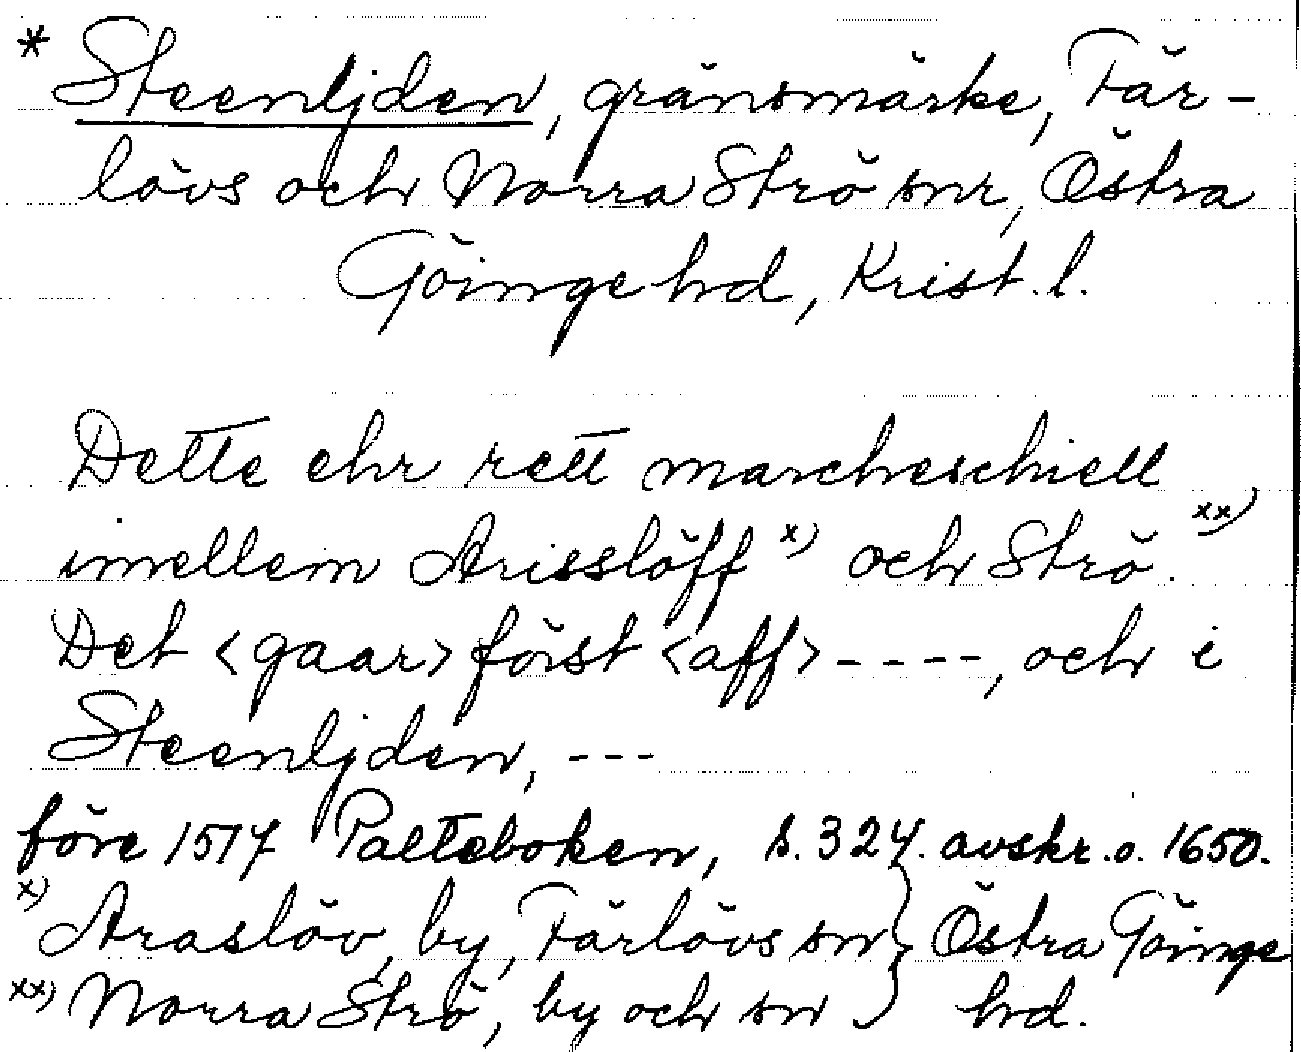 * Steenljden, gränsmärke, Fär-
lövs och Norra Strö snr, Östra
Göinge hd, Krist. l.
Dette ehr rett marcheschiell
imellem Arisslöff x) och Strö xx).
Det <gaar> först <aff> ----, och i
Steenljden, ---
före 1517 Palteboken, s. 324. avskr. o. 1650.
x) Araslöv, by, Färlövs sn } Östra Göinge
xx) Norra Strö, by och sn } hd.